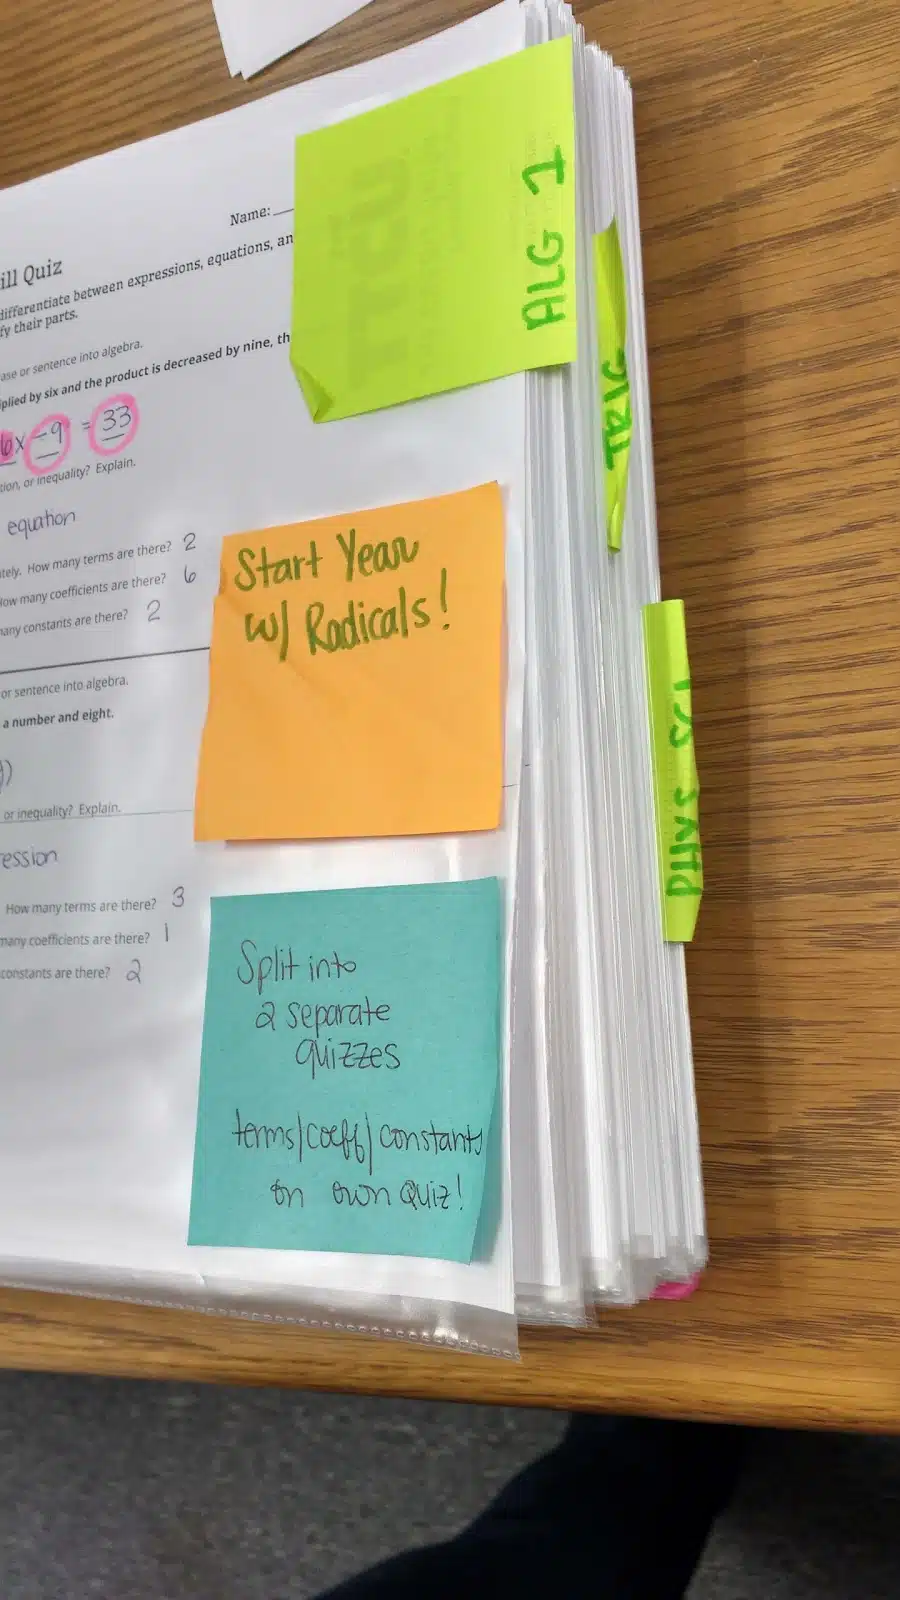 ALG 1
Name:
ill Quiz
differentiate between expressions, equations, an
fy their parts.
ase or sentence into algebra.
iplied by six and the product is decreased by nine, th
6x -9 = 33
tion, or inequality? Explain.
equation
tely. How many terms are there? 2
How many coefficients are there? 6
many constants are there? 2
or sentence into algebra.
a number and eight.
or inequality? Explain.
ression
How many terms are there? 3
many coefficients are there? 1
constants are there? 2
Start Year
w/ Radicals!
Split into
2 separate
quizzes
terms/coeff/constants
on own quiz!
TRIG
PHYS SCI